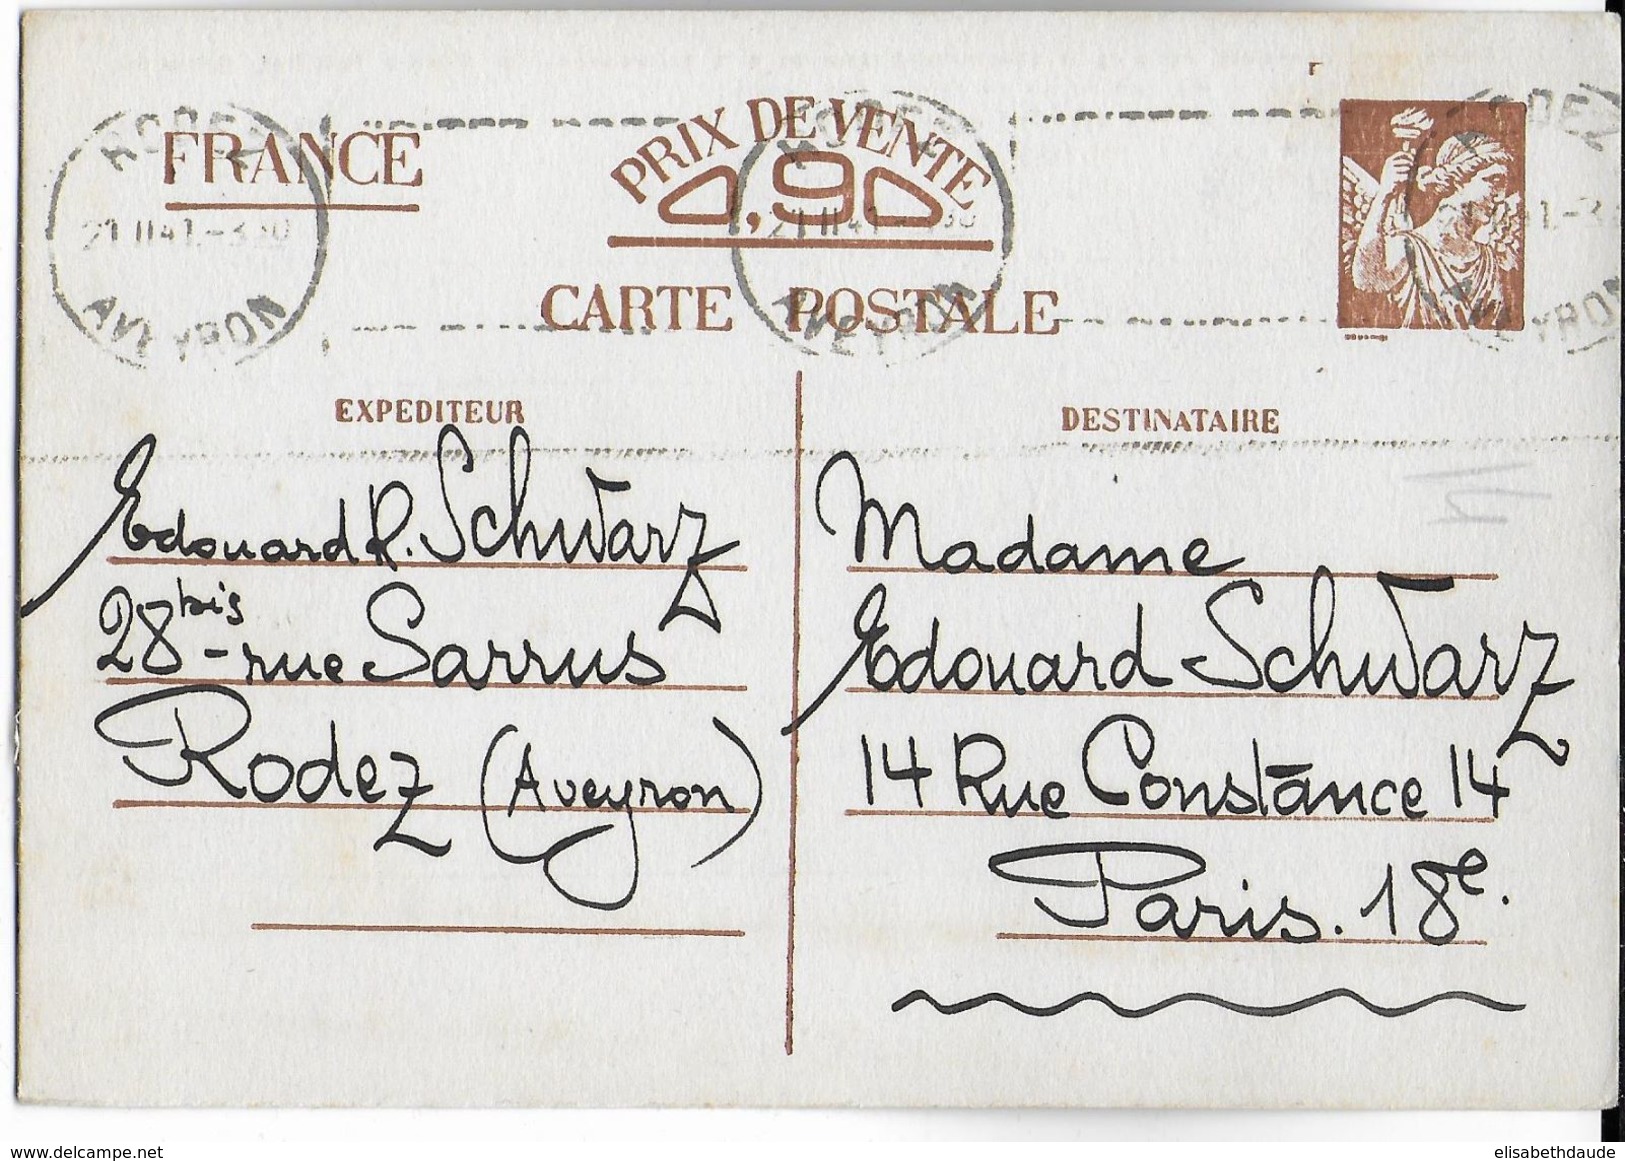 FRANCE
PRIX DE VENTE
0,90
CARTE POSTALE
RODEZ
21 II 41 - 330
AVEYRON
EXPEDITEUR
Edouard R. Schwarz
28 bis - rue Sarrus
Rodez (Aveyron)
DESTINATAIRE
Madame
Edouard Schwarz
14 Rue Constance 14
Paris. 18e.
www.delcampe.net
elisabethdaude